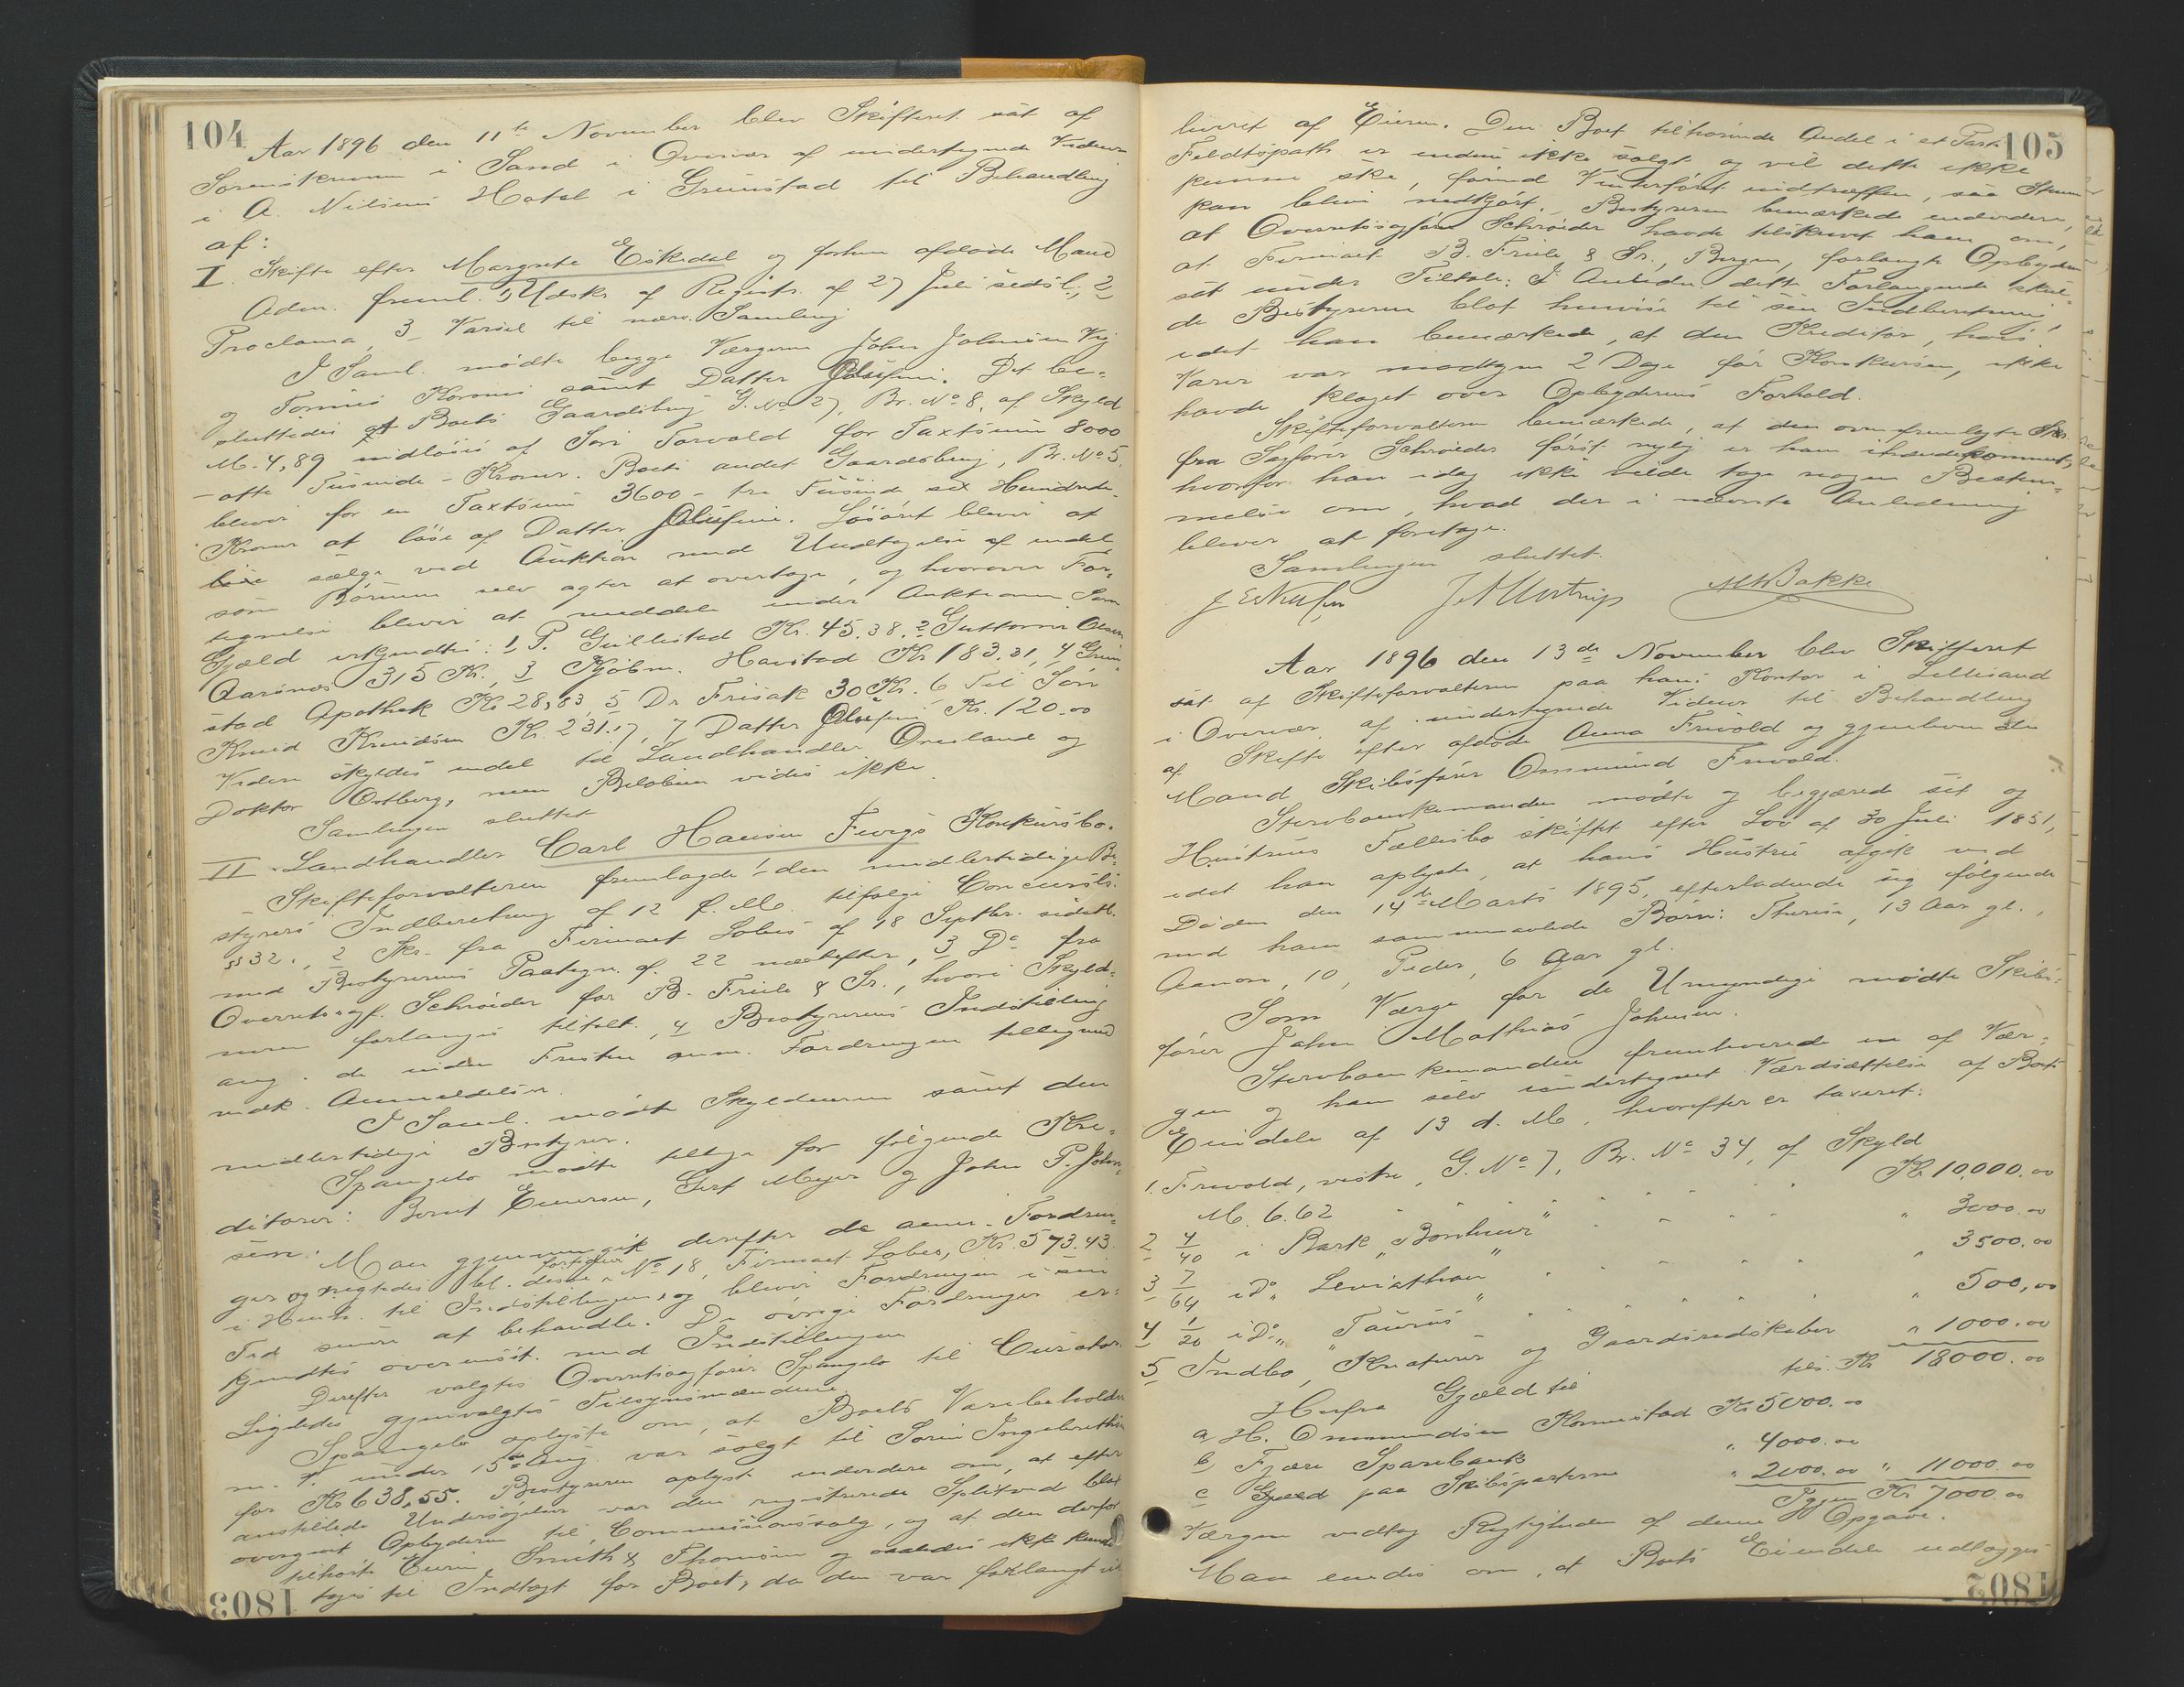 104
Aar 1896 den 11te November blev Skifteret sat af
Sorenskriveren i Sand i Overvær af undertegnede Vidner
i A. Nilsens Hotel i Grimstad til Behandling
af:
I. Skifte efter Margrete Eskedal og forhen afdøde Mand
Adm. freml. 1, Udskr. af Registr. af 27 Juli sidstl., 2
Proclama, 3 Varsel til nærv. Samling
I Saml. mødte begge Værgerne John Johnsen Vig
og Tønnes samt Datter Olufine. Det be=
sluttedes at Boets Gaardsbrug G. No 27, Br. No 8, af Skyld
M. 4,89 indløses af Søn Torvald for Taxtsum 8000
- otte Tusinde - Kroner. Boets andet Gaardsbrug, Br. No 5,
bliver for en Taxtsum 3600 - tre Tusinde sex Hundrede
Kroner at løse af Datter Olufine. Løsøret bliver at
sælge ved Auktion med Undtagelse af endel
som Børnene selv agter at overtage, og hvorover For=
tegnelse bliver at meddele under Auktionen. Som
Gjæld vedgjendtes: 1 P. Gullestad Kr. 45.38, 2 Guttorm Olsen
Aasnæs 315 Kr., 3 Kjøbm. Havstad Kr 183.31, 4 Grim=
stad Apothek Kr 28,83, 5 Dr Frisak 30 Kr. 6 Til Søn
Knud Knudsen Kr. 231.17, 7 Datter Olufine Kr. 120.00
Videre skyldes endel til Landhandler Omland og
Doktor Ostberg, men Beløbene vides ikke.
Samlingen sluttet
II. Landhandler Carl Hansen Konkursbo.
Skifteforvalteren fremlagde 1 den midlertidige Be=
styrers Indberetning af 12 f. M. tilfølge Concursls.
§ 32., 2 Skr. fra Firmaet Lobes af 18 Septbr. sidstl.
med Bestyrerens Paategn. af 22 næstefter, 3 Do fra
Overretssagf. Schrøder for B. Friele & Sr., hvori Skyld=
neren forlanges tiltalt, 4 Bestyrerens Indstilling
ang. de inden Fristen anm. Fordringer tilligemed
vedk. Anmeldelser.
I Saml. mødte Skyldneren samt den
midlertidige Bestyrer.
Spangelo mødte tillige for følgende Kre=
ditorer: Bernt Evensen, Gert Meyer og John P. John=
sen.
Man gjennemgik derefter de anm. Fordrin=
ger og negtedes bl. disse fortiden No 18, Firmaet Lobes, Kr. 573.43
i Henh. til Indstillingen, og bliver Fordringen i sin
Tid senere at behandle. De øvrige Fordringer er=
kjendtes overensst. med Indstillingen
Derefter valgtes Overretssagfører Spangelo til Curator.
Ligledes gjenvalgtes Tilsynsmændene.
Spangelo oplyste om, at Boets Varebeholdn.
m. V. under 15de Aug. var solgt til Søren Ingebretsen
for Kr 638,55. Bestyreren oplyst endvidere om, at efter
anstillede Undersøgelser var den registrerede Splitved blot
overgivet Opbyderen til Commissionssalg, og at den derfor
tilhørte Eieren Smith & Thomsen og saaledes ikke kunde
tages til Indtægt for Boet, da den var forlangt ud
1803
105
leveret af Eieren. Den Boet tilhørende Andel i et Parti
Feldtspath er endnu ikke solgt og vil dette ikke
kunne ske, førend Vinterføret indtræffer, saa Stenen
kan blive nedkjørt. Bestyreren bemærkede endvidere,
at Overretssagfører Schrøder havde tilskrevet ham om,
at Firmaet B. Friele & Sr., Bergen, forlangte Opbyderen
sat under Tiltale. I Anledn. dette Forlangende skul=
de Bestyreren blot henvise til sin Indberetning,
idet han bemærkede, at den Kreditor, hvis
Varer var modtagne 2 Dage før Konkursen, ikke
havde klaget over Opbyderens Forhold.
Skifteforvalteren bemærkede, at den ovenfremlagte Skr.
fra Sagfører Schrøder først nylig er ham ihændekommet,
hvorfor han idag ikke vilde tage nogen Bestem=
melse om, hvad der i nævnte Anledning
bliver at foretage.
Samlingen sluttet.
M W Bakke
Aar 1896 den 13de November blev Skifteret
sat af Skifteforvalteren paa hans Kontor i Lillesand
i Overvær af undertegnede Vidner til Behandling
af Skifte efter afdøde Anna Frivold og gjenlevende
Mand Skibsfører Ommund Frivold.
Stervboenkemanden mødte og begjærede sit og
Hustrues Fællesbo skiftet efter Lov af 30 Juli 1851,
idet han oplyste, at hans Hustru afgik ved
Døden den 14de Marts 1895, efterladende sig følgende
med ham sammenavlede Børn: Therese, 13 Aar gl.,
Aanon, 10, Peder, 6 Aar gl.
Som Værge for de Umyndige mødte Skibs=
fører John Mathias Johnsen.
Stervboenkemanden fremleverede en af Vær=
gen og ham selv undertegnet Værdsættelse af Boets
Eiendele af 13 d. M., hvorefter er taxeret:
1. Frivold, vestre, G. No 7, Br. No 34, af Skyld
M. 6.62 Kr 10,000.00
2 4/40 i Bark "Bonheur" " 3000.00
3 7/64 i Do "Leviathan" " 3500.00
4 1/20 i Do "Taurus" " 500,00
5 Indbo, Kreaturer og Gaardsredskaber " 1000.00
tils. Kr 18000.00
Herfra Gjæld til
a H. Ommundsen Kr 5000.00
b Fjære Sparebank " 4000.00
c Gjæld paa Skibsparterne " 2000.00 " 11000.00
Igjen Kr 7000.00
Værgen vedtog Rigtigheden af denne Opgave.
Man enedes om, at Boets Eiendele udlægges
1802